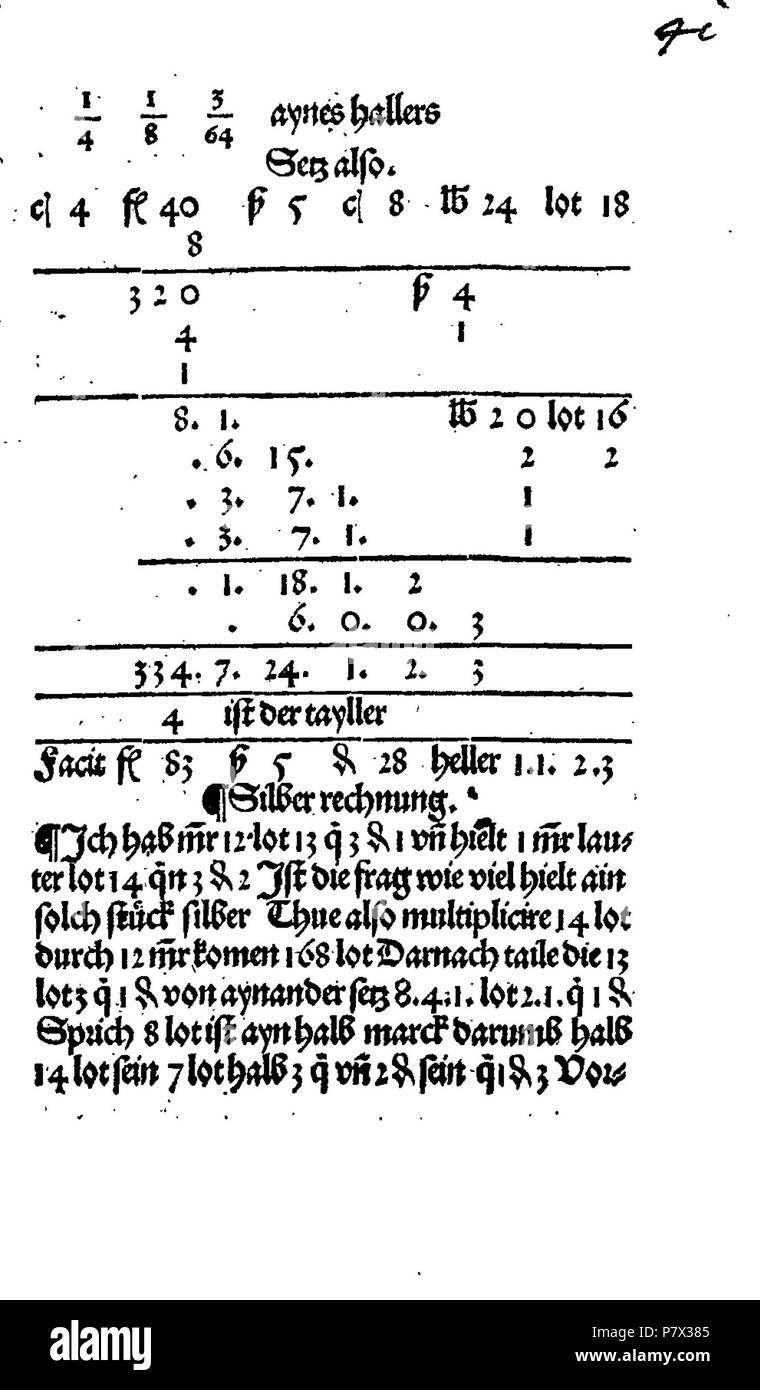 1/4 1/8 3/64 aynes hallers
Setz also.
4 fl 40 ß 5 8 lb 24 lot 18
8
320 ß 4
4 1
1
8. 1. lb 20 lot 16
. 6. 15. 2 2
. 3. 7. 1. 1
. 3. 7. 1. 1
. 1. 18. 1. 2
. 6. 0. 0. 3
334. 7. 24. 1. 2. 3
4 ist der tayller
Facit fl 83 ß 5 ₰ 28 heller 1.1. 2.3
¶Silber rechnung.
¶Ich hab m̄r 12·lot 13 q̇ 3 ₰ 1 vn̄ hielt 1 m̄r lau⸗
ter lot 14 q̇n 3 ₰ 2 Ist die frag wie viel hielt ain
solch stuͤck silber Thue also multiplicire 14 lot
durch 12 m̄r komen 168 lot Darnach taile die 13
lot 3 q̇ 1 ₰ von aynander setz 8.4.1. lot 2.1. q̇ 1 ₰
Sprich 8 lot ist ayn halb marck darumb halb
14 lot sein 7 lot halb 3 q̇ vn̄ 2 ₰ sein q̇ 1 ₰ 3 Vor⸗
alamy
alamy
Image ID: P7X385
www.alamy.com